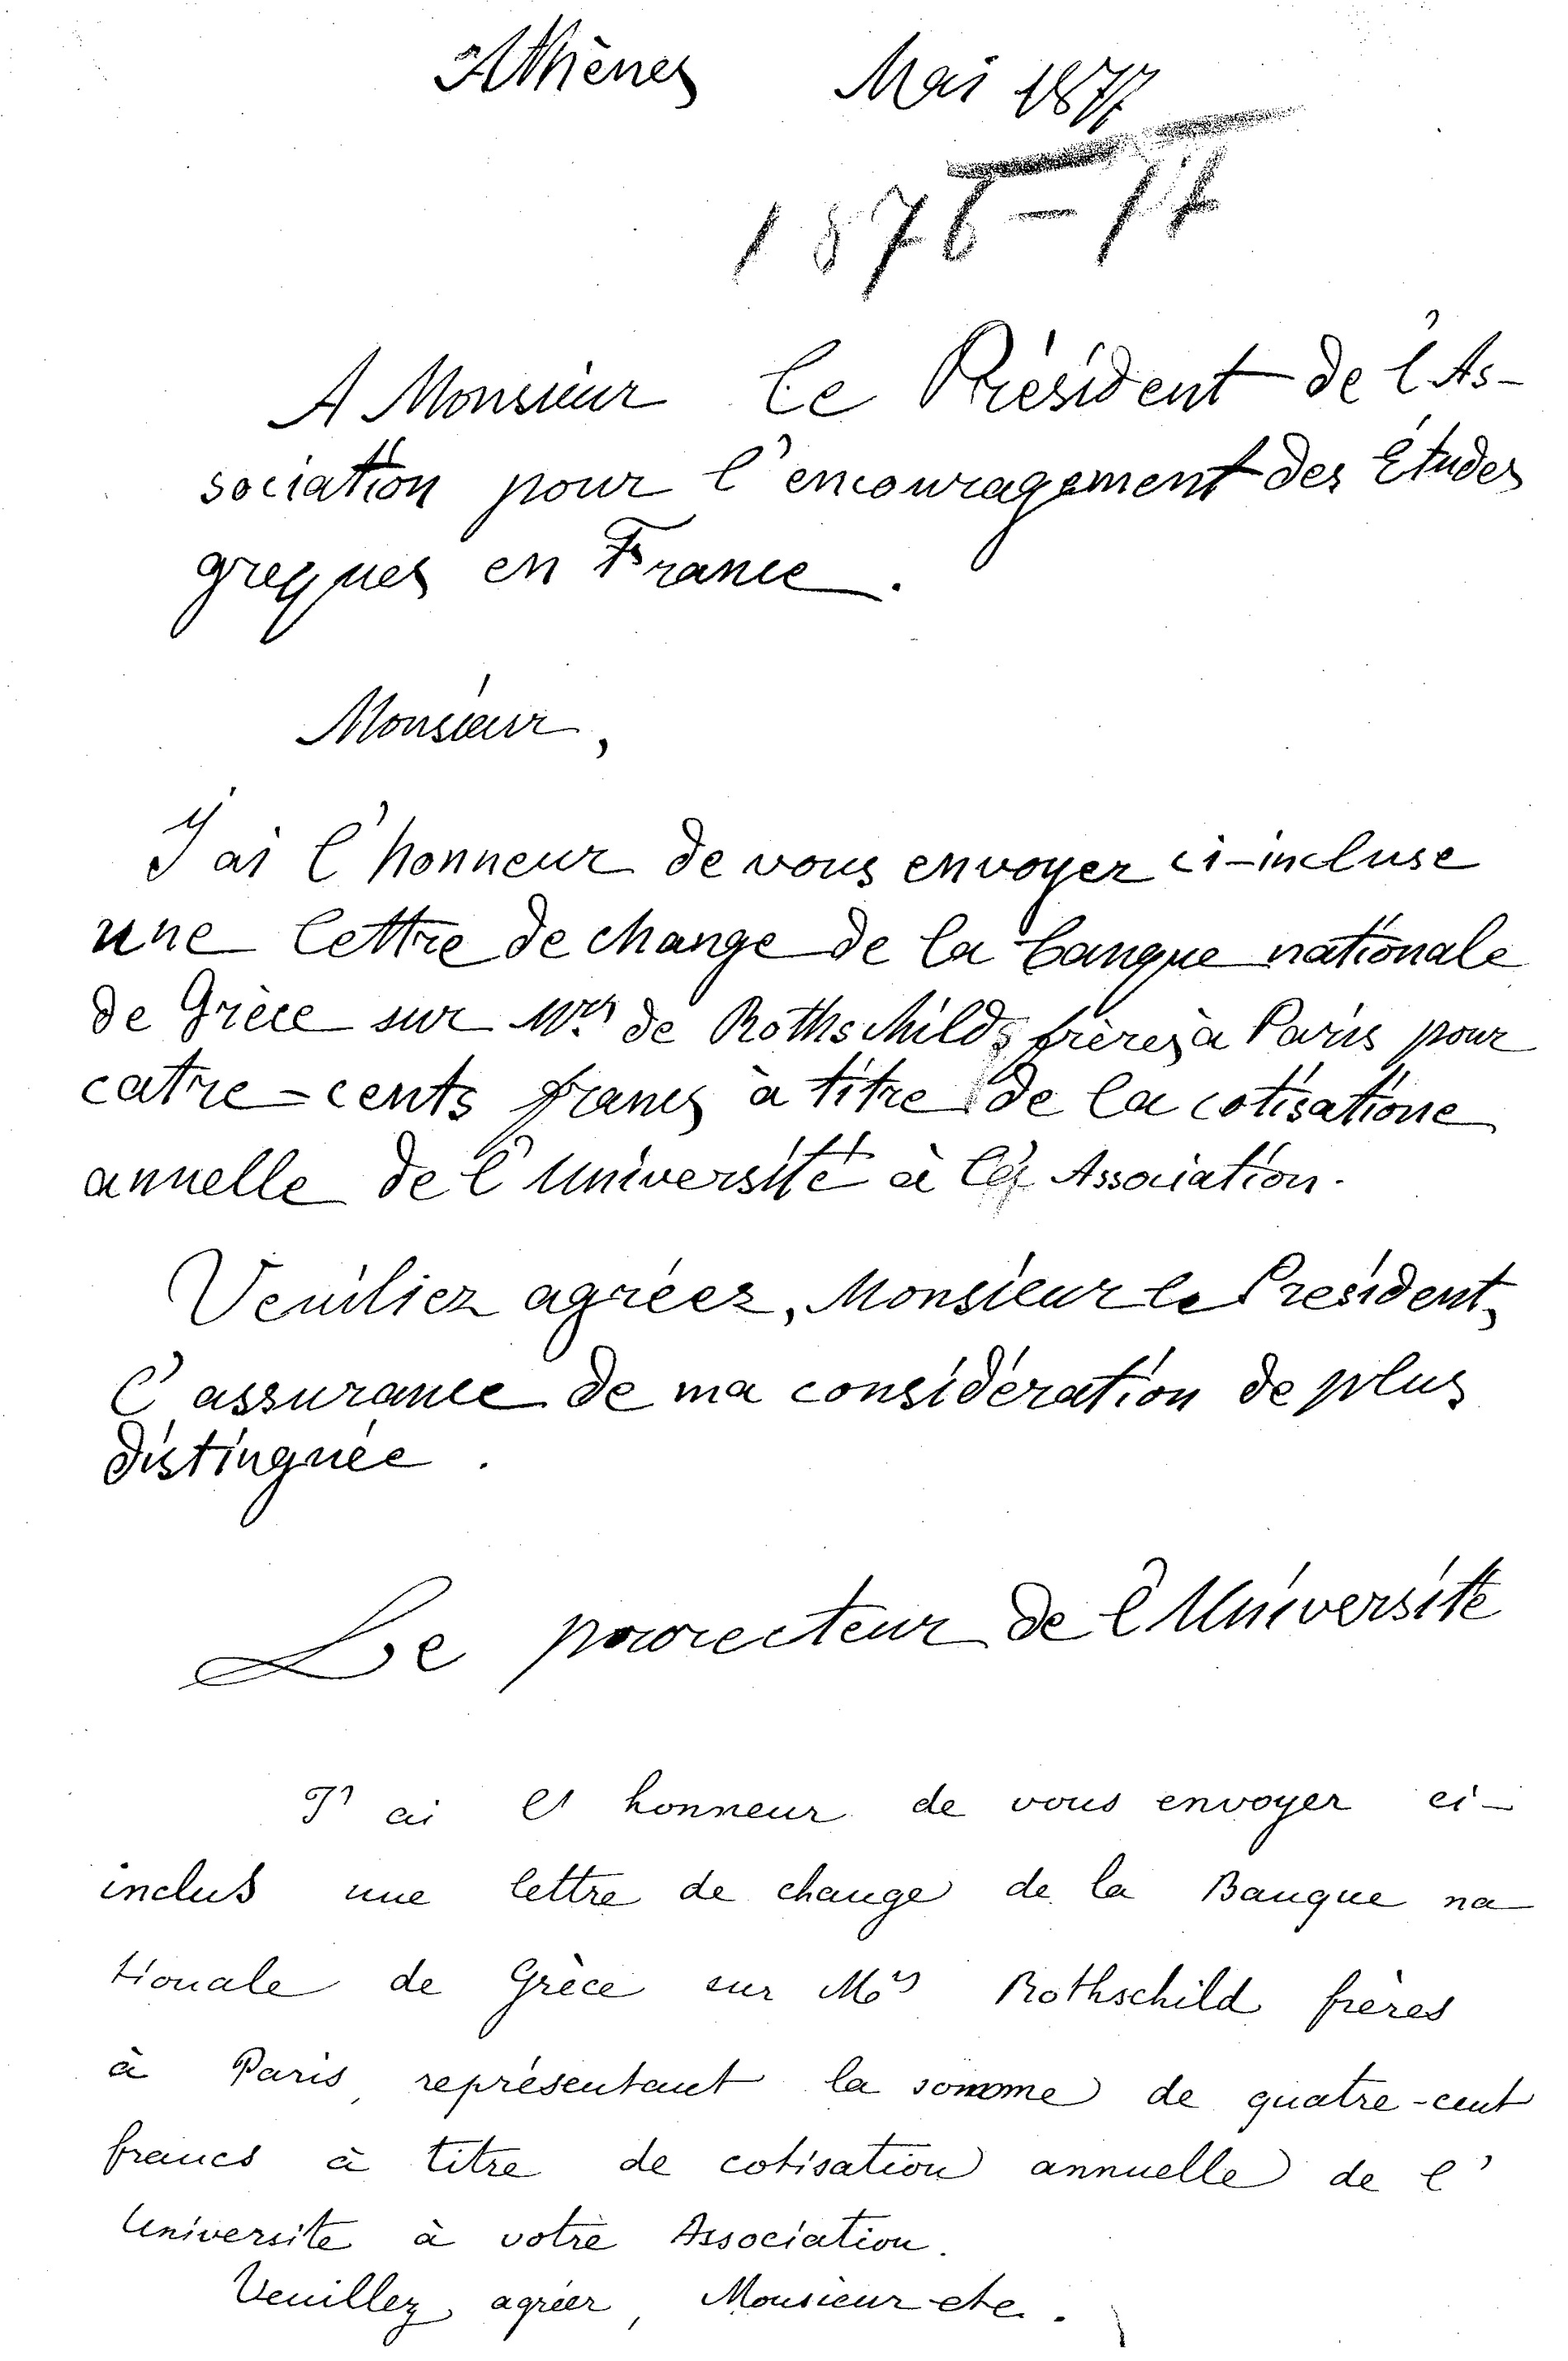 Athènes Mai 1877
1876-77
A Monsieur le Président de l'As-
sociation pour l'encouragement des Études
greques en France.
Monsieur,
J'ai l'honneur de vous envoyer ci-incluse
une lettre de change de la banque nationale
de Grèce sur Mrs de Rothschilds frères à Paris pour
catre-cents francs à titre de la cotisatione
annelle de l'Université à la Association.
Veuiliez agréez, Monsieur le President,
l'assurance de ma considération de plus
distinguée.
Le prorecteur de l'Université
J'ai l'honneur de vous envoyer ci-
inclus une lettre de change de la Banque na
tionale de Grèce sur Mrs Rothschild frères
à Paris, représentant la somme de quatre-cent
francs à titre de cotisation annuelle de l'
Université à votre Association.
Veuillez agréer, Monsieur etc.